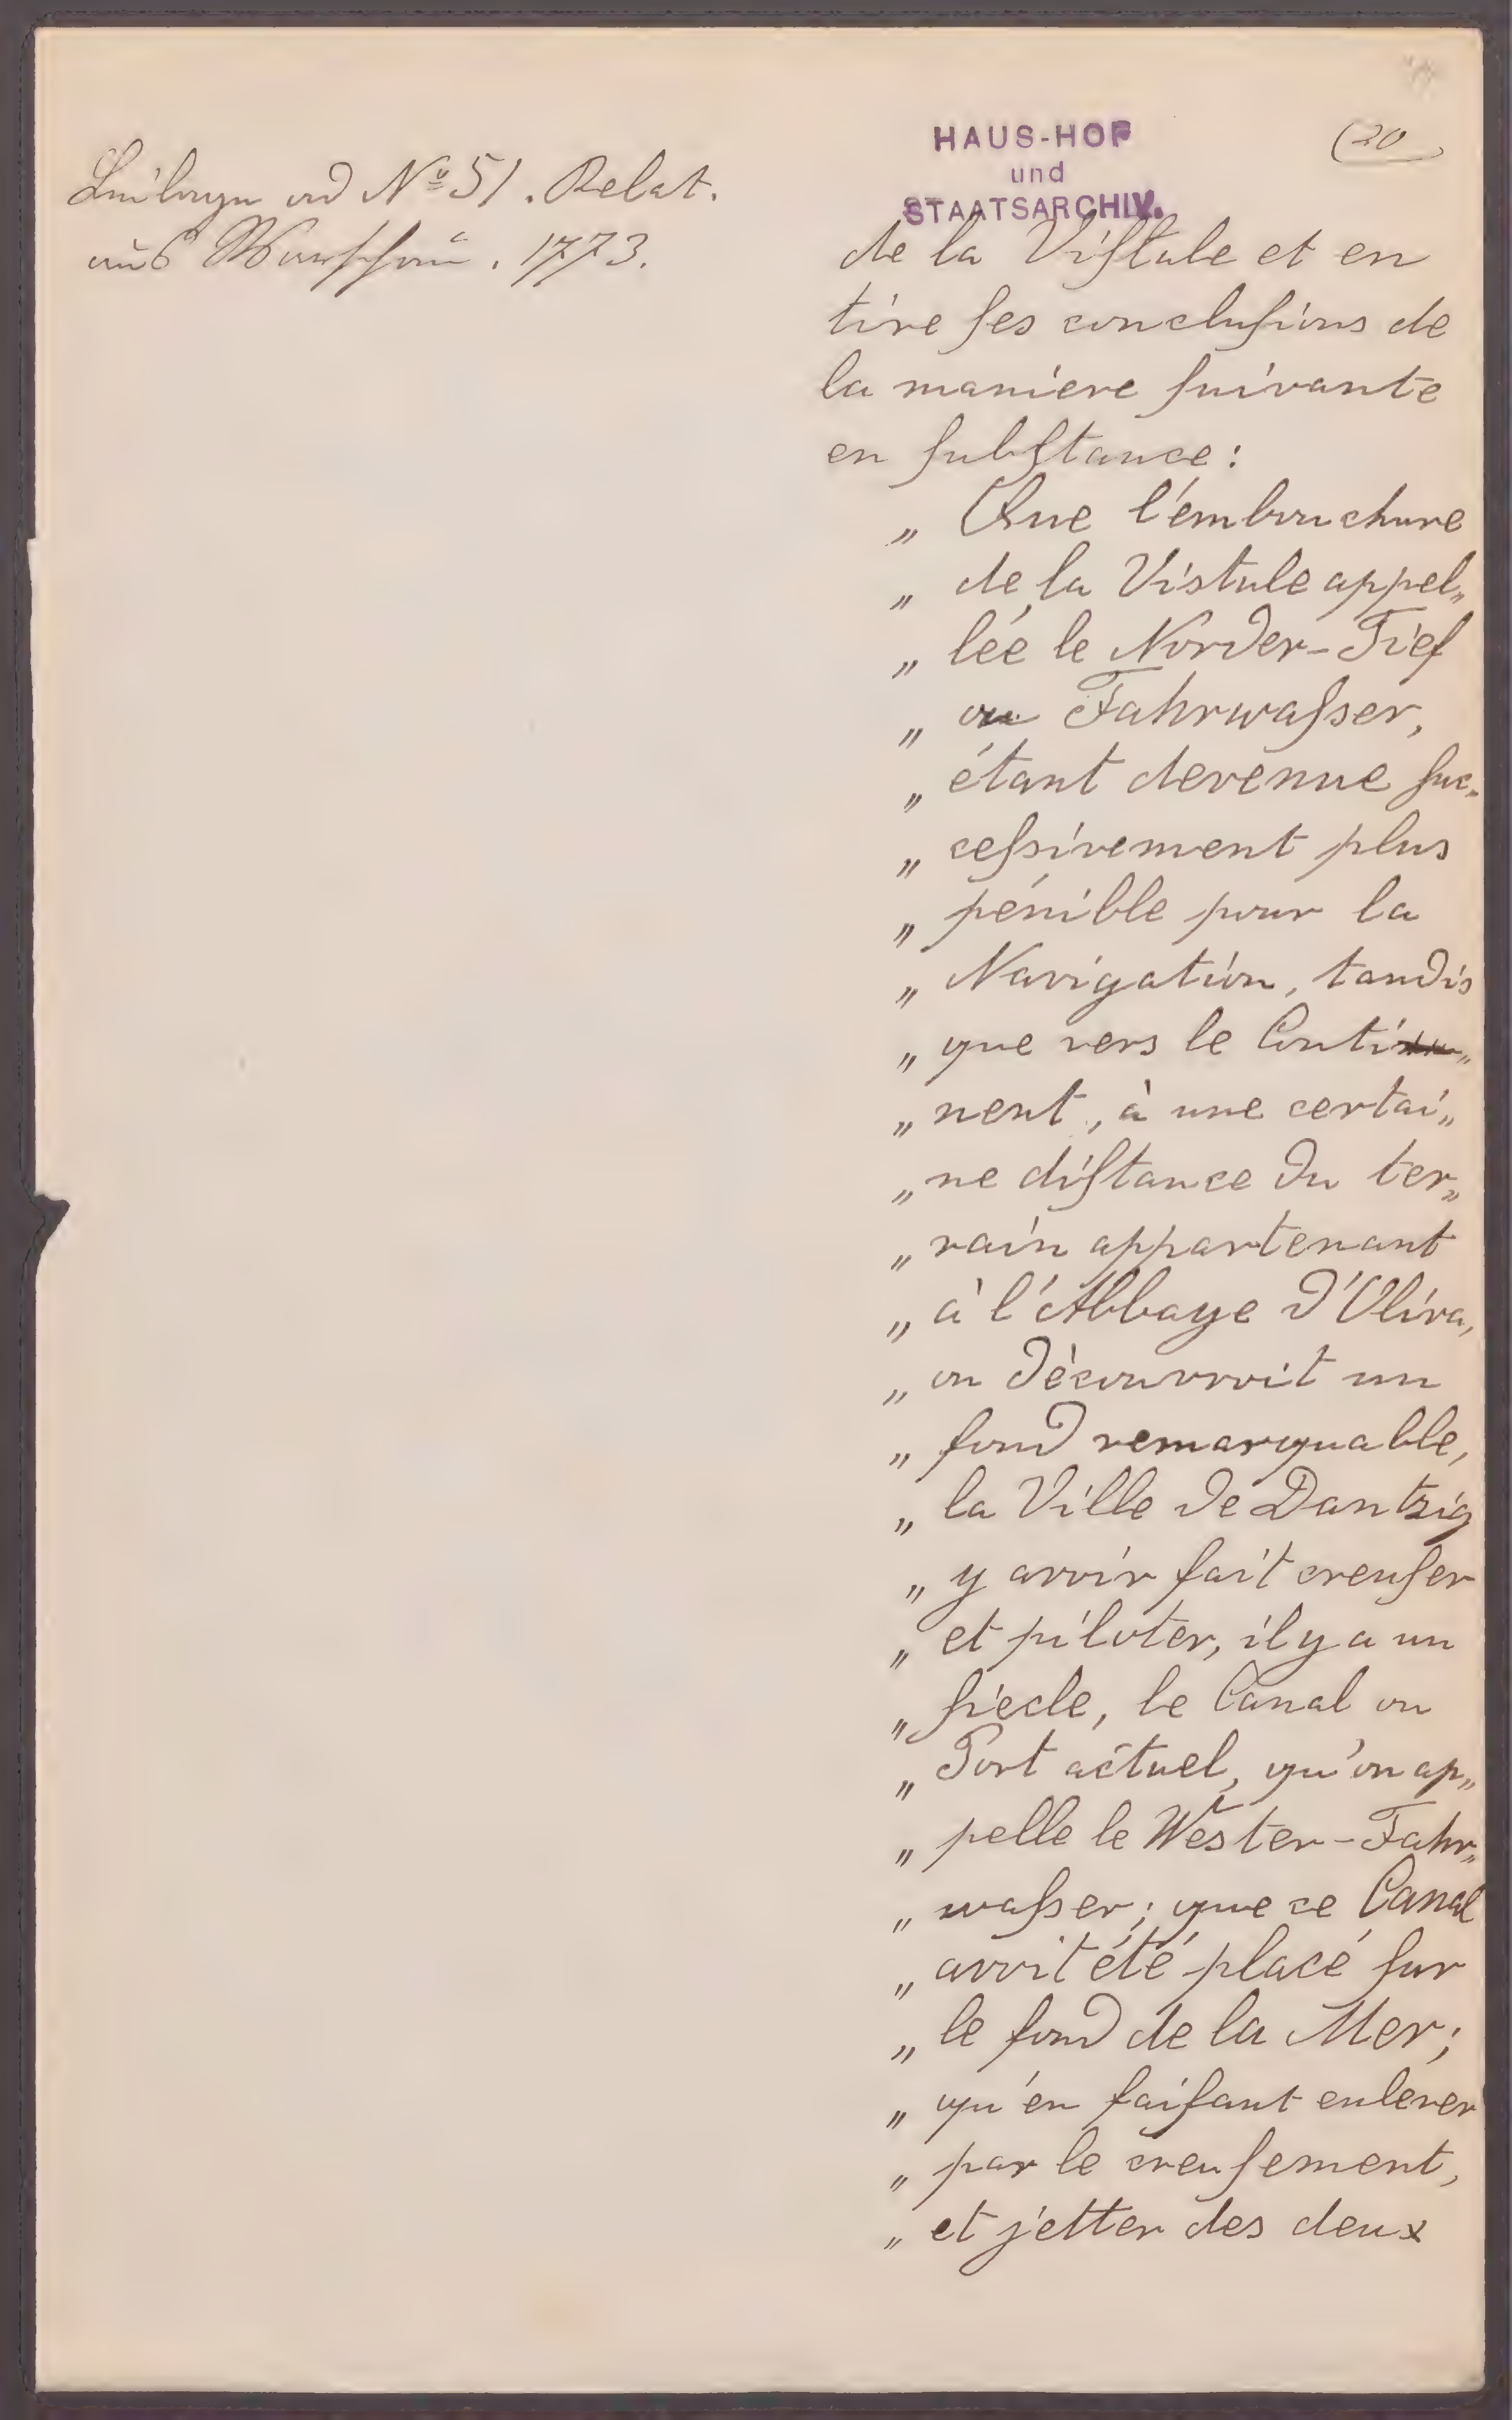 Beilage ad Nº 51. Relat.
aus Warschau. 1773.
HAUS-HOF
und
STAATSARCHIV.
(20
de la Viſtule et en
tire ſes concluſions de
la maniere ſuivante
en ſubſtance:
„ Que l'émbouchure
„ de la Vistule appel„
„ lée le Norder-Tief
„ ou Fahrwaſser,
„ étant devenue ſuc„
„ ceſsivement plus
„ pénible pour la
„ Navigation, tandis
„ que vers le Conti„
„ nent, à une certai„
„ ne diſtance du ter„
„ rain appartenant
„ à l'Abbaye d'Oliva,
„ on décowvroit un
„ fond remarquable,
„ la Ville de Dantzig
„ y avoir fait creuſer
„ et piloter, il y a un
„ ſiecle, le Canal ou
„ Port actuel, qu'on ap„
„ pelle le Wester-Fahr„
„ waſser; que ce Canal
„ avoit été placé ſur
„ le fond de la Mer;
„ qu'en faiſant enlever
„ par le creuſement,
„ et jetter des deux